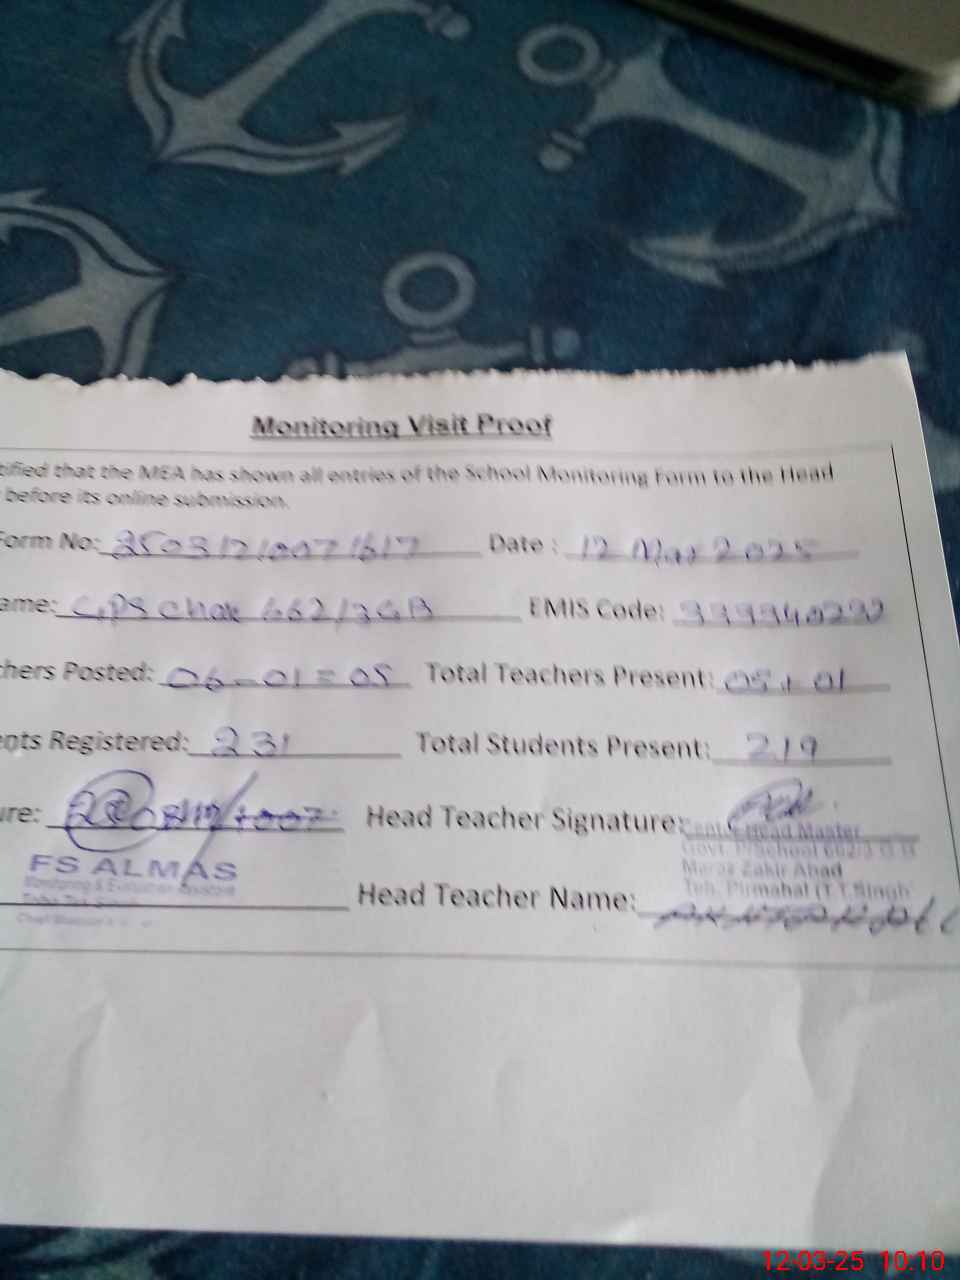 Monitoring Visit Proof
tified that the MEA has shown all entries of the School Monitoring Form to the Head
before its online submission.
Form No: Date : 12 Mar 2025
ame: GPS Chak 662/3GB EMIS Code:
chers Posted: 06-01=05 Total Teachers Present: 05+01
ents Registered: 231 Total Students Present: 219
ure: Head Teacher Signature:
Head Master
FS ALMAS
Zakir Abad
Teh. Pirmahal (T.T.Singh)
Head Teacher Name:
12-03-25 10:10